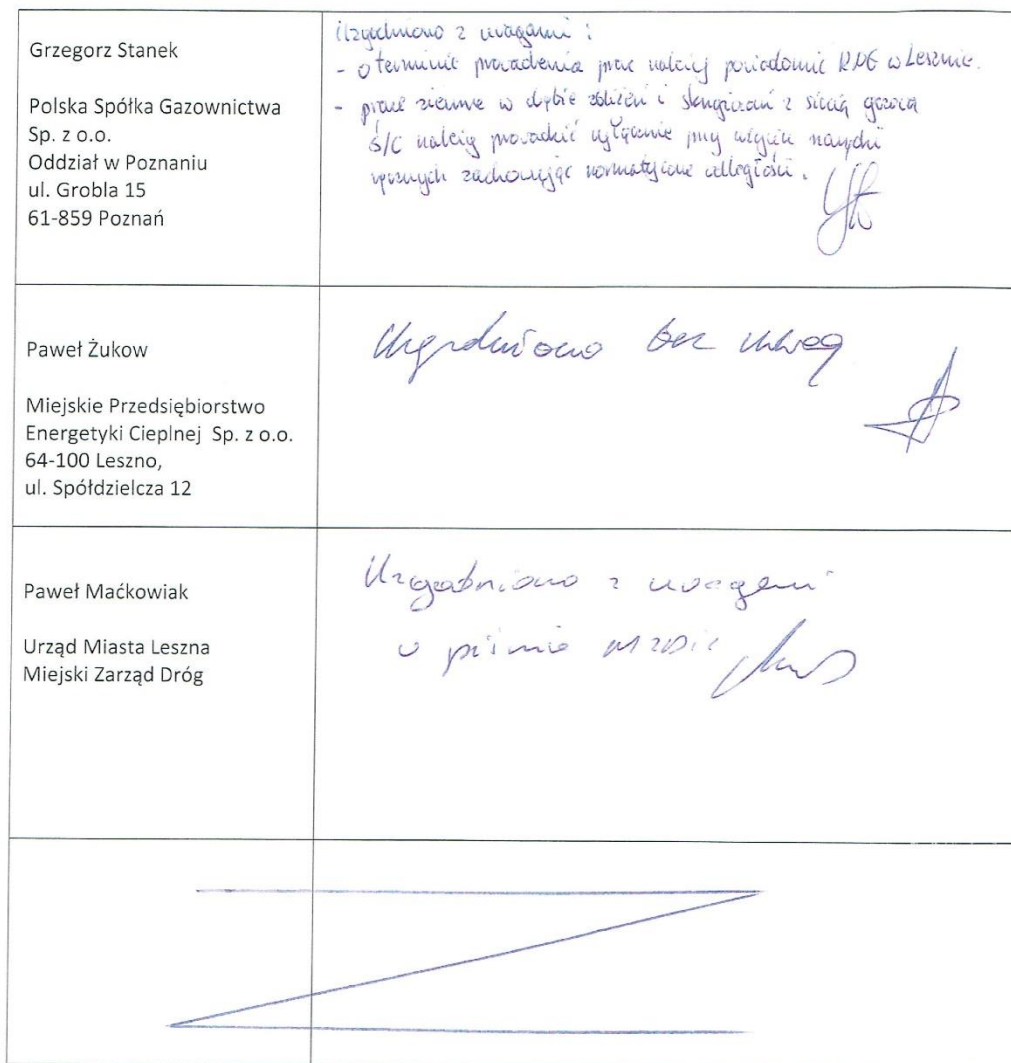 Grzegorz Stanek
Polska Spółka Gazownictwa
Sp. z o.o.
Oddział w Poznaniu
ul. Grobla 15
61-859 Poznań
Uzgodniono z uwagami :
- o terminie prowadzenia prac należy powiadomić w Lesznie.
- prace ziemne w zbliżeń i skrzyżowań z siecią gazową
ś/c należy prowadzić wyłącznie przy użyciu narzędzi
ręcznych zachowując normatywne odległości.
Paweł Żukow
Miejskie Przedsiębiorstwo
Energetyki Cieplnej Sp. z o.o.
64-100 Leszno,
ul. Spółdzielcza 12
Uzgodniono bez uwag
Paweł Maćkowiak
Urząd Miasta Leszna
Miejski Zarząd Dróg
Uzgodniono z uwagami
w piśmie